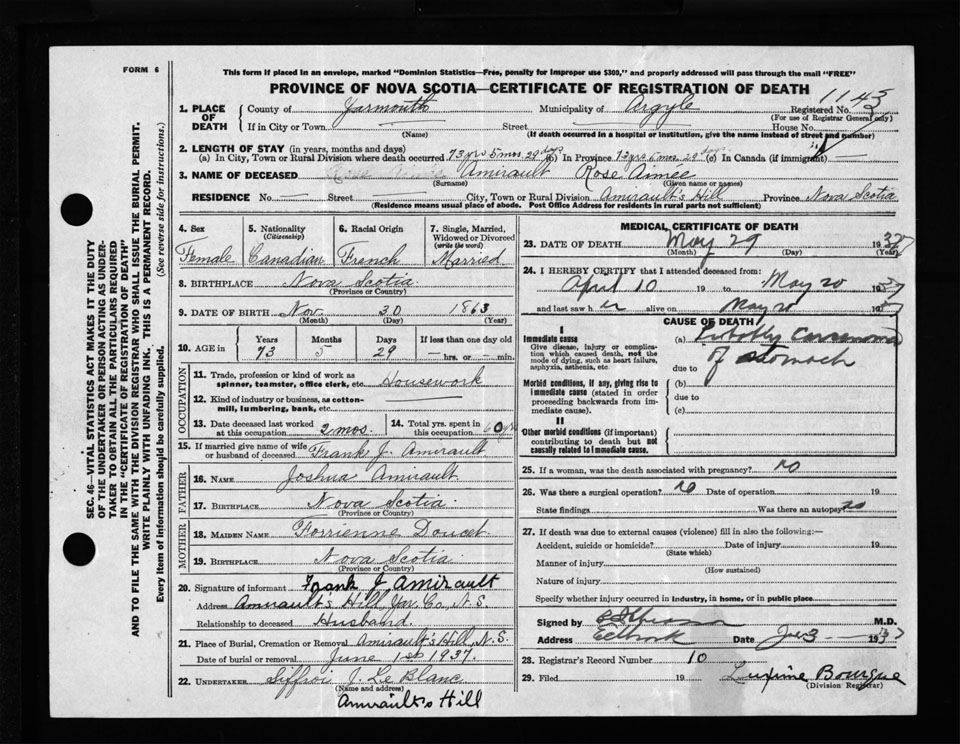 FORM 6
This form if placed in an envelope, marked "Dominion Statistics—Free, penalty for improper use $300," and properly addressed will pass through the mail "FREE"
PROVINCE OF NOVA SCOTIA—CERTIFICATE OF REGISTRATION OF DEATH
1143
1. PLACE OF DEATH
County of Yarmouth Municipality of Argyle Registered No.
(For use of Registrar General only)
If in City or Town Street House No.
(Name) (If death occurred in a hospital or institution, give the name instead of street and number)
2. LENGTH OF STAY (in years, months and days)
(a) In City, Town or Rural Division where death occurred 73 yrs 5 mos. 29 days (b) In Province 73 yrs 5 mos. 29 days (c) In Canada (if immigrant) —
3. NAME OF DECEASED Amirault Rose Aimée
(Surname) (Given name or names)
RESIDENCE No. — Street City, Town or Rural Division Amirault's Hill Province Nova Scotia
(Residence means usual place of abode. Post Office Address for residents in rural parts not sufficient)
4. Sex
Female
5. Nationality (Citizenship)
Canadian
6. Racial Origin
French
7. Single, Married, Widowed or Divorced (write the word)
Married
8. BIRTHPLACE Nova Scotia
(Province or Country)
9. DATE OF BIRTH Nov. 30 1863
(Month) (Day) (Year)
10. AGE in Years Months Days If less than one day old
73 5 29 — hrs. or — min.
OCCUPATION
11. Trade, profession or kind of work as spinner, teamster, office clerk, etc. Housework
12. Kind of industry or business, as cotton-mill, lumbering, bank, etc. —
13. Date deceased last worked at this occupation 2 mos.
14. Total yrs. spent in this occupation 60 yrs
15. If married give name of wife or husband of deceased Frank J. Amirault
FATHER
16. NAME Joshua Amirault
17. BIRTHPLACE Nova Scotia
(Province or Country)
MOTHER
18. MAIDEN NAME Forrienne Doucet
19. BIRTHPLACE Nova Scotia
(Province or Country)
20. Signature of informant Frank J Amirault
Address Amirault's Hill Yar. Co. N.S.
Relationship to deceased Husband
21. Place of Burial, Cremation or Removal Amirault's Hill, N.S.
Date of burial or removal June 1st 1937.
22. UNDERTAKER Siffroi J. Le Blanc
(Name and address)
Amirault's Hill
MEDICAL CERTIFICATE OF DEATH
23. DATE OF DEATH May 29 1937
(Month) (Day) (Year)
24. I HEREBY CERTIFY that I attended deceased from:
April 10 19 to May 20 1937
and last saw h er alive on May 20 1937
CAUSE OF DEATH
I
Immediate cause
Give disease, injury or complication which caused death, not the mode of dying, such as heart failure, asphyxia, asthenia, etc.
(a) Probably carcinoma of stomach
due to
Morbid conditions, if any, giving rise to immediate cause (stated in order proceeding backwards from immediate cause).
(b)
due to
(c)
II
Other morbid conditions (if important) contributing to death but not causally related to immediate cause.
25. If a woman, was the death associated with pregnancy? no
26. Was there a surgical operation? no Date of operation 19
State findings Was there an autopsy? no
27. If death was due to external causes (violence) fill in also the following:—
Accident, suicide or homicide? Date of injury 19
(State which)
Manner of injury
(How sustained)
Nature of injury
Specify whether injury occurred in industry, in home, or in public place
Signed by M.D.
Address Eelbrook Date June 3 — 1937
28. Registrar's Record Number 10
29. Filed 19 Bourque
(Division Registrar)
SEC. 46—VITAL STATISTICS ACT MAKES IT THE DUTY
OF THE UNDERTAKER OR PERSON ACTING AS UNDER-
TAKER TO OBTAIN ALL THE PARTICULARS REQUIRED
IN THE "CERTIFICATE OF REGISTRATION OF DEATH"
AND TO FILE THE SAME WITH THE DIVISION REGISTRAR WHO SHALL ISSUE THE BURIAL PERMIT.
WRITE PLAINLY WITH UNFADING INK. THIS IS A PERMANENT RECORD.
Every item of information should be carefully supplied. (See reverse side for instructions.)